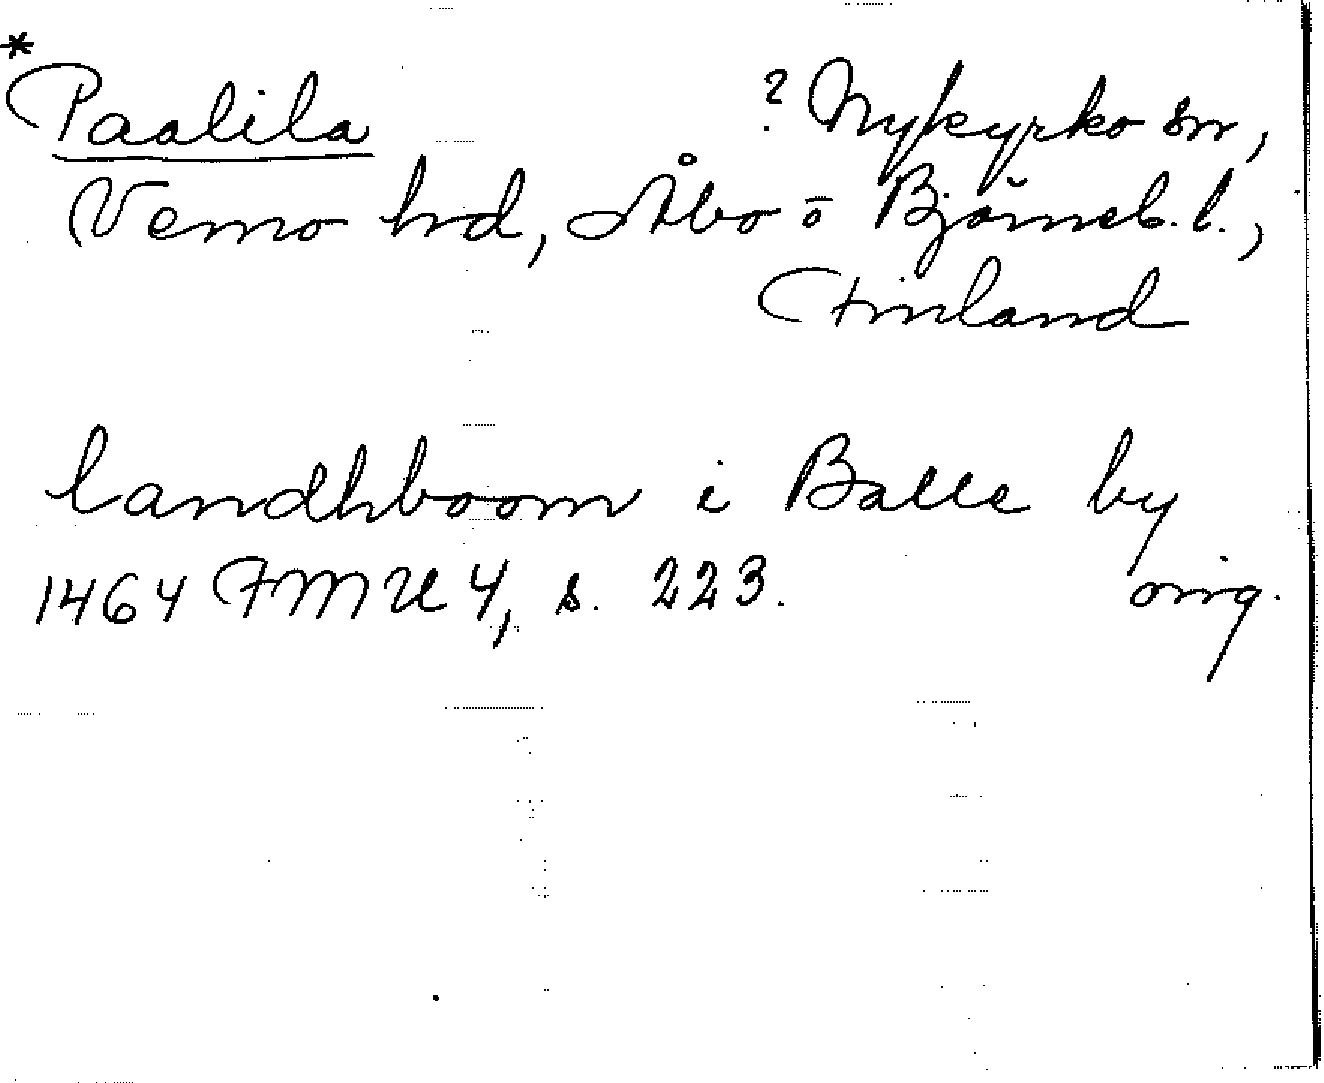 * Paalila ? Nykyrko sn,
Vemo hd, Åbo o Björneb. l.,
Finland
landhboom i Balle by
1464 FMU 4, s. 223. orig.